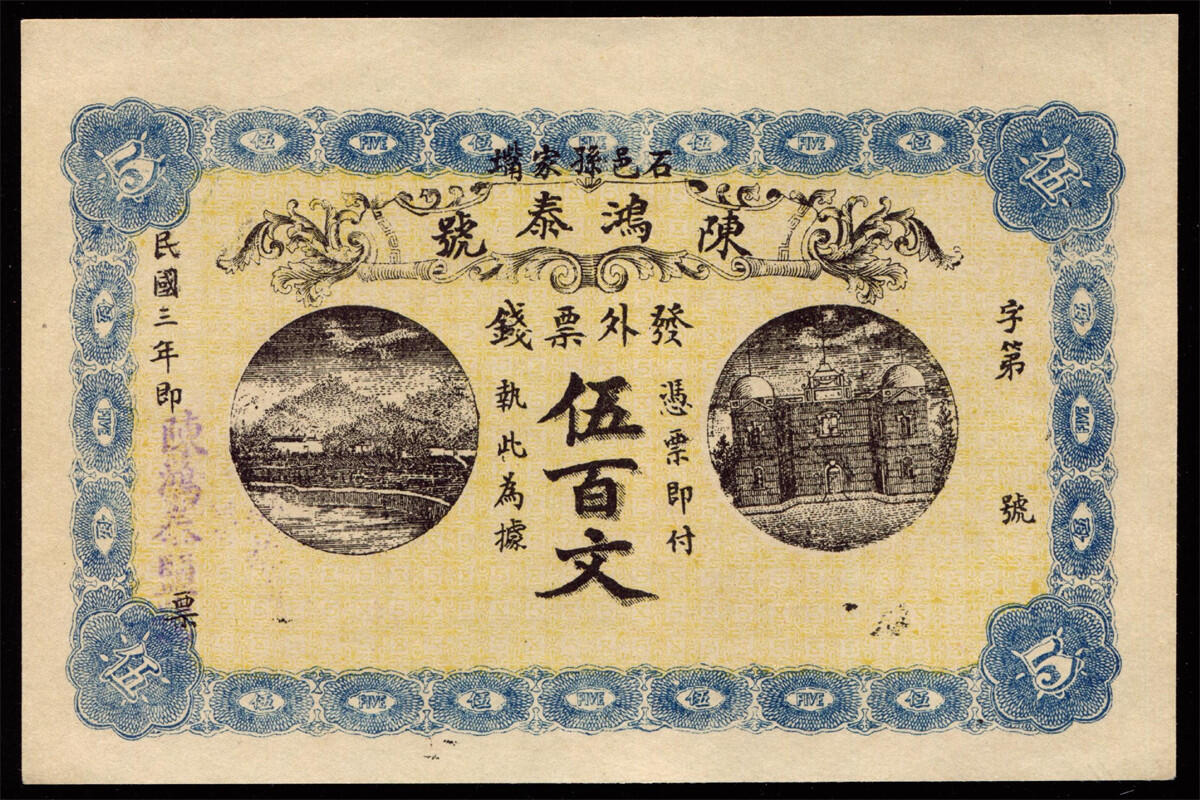 伍 FIVE 伍 FIVE 伍 FIVE 伍
5 伍
石邑孫家嘴
陳鴻泰號
發外票錢
憑票即付
伍百文
執此為據
字第 號
民國三年即 票
陳鴻泰
伍 FIVE 伍
伍 FIVE 伍
伍 5
伍 FIVE 伍 FIVE 伍 FIVE 伍